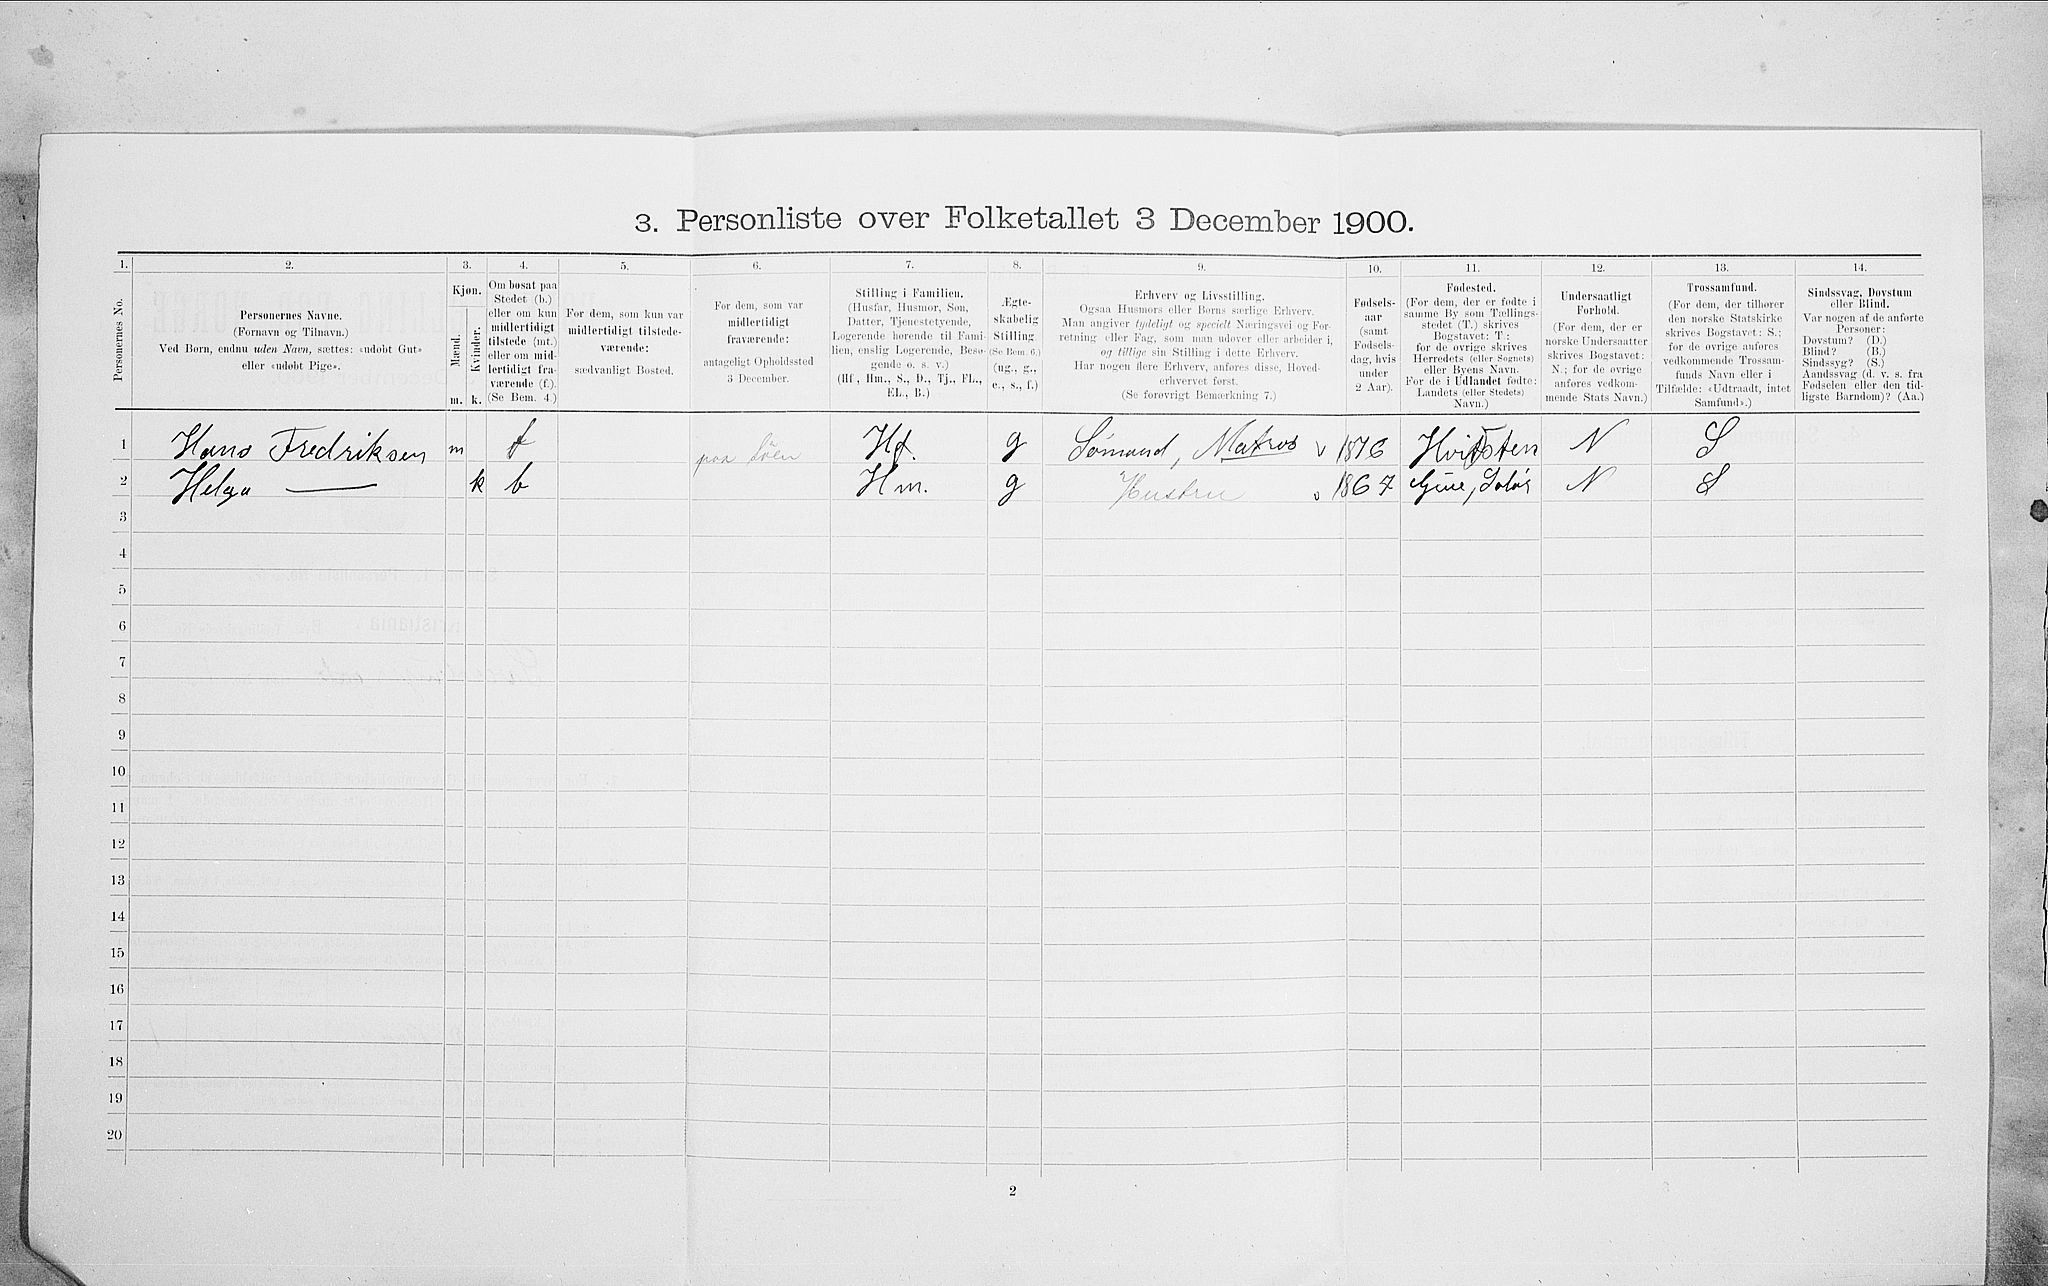 3. Personliste over Folketallet 3 December 1900.
1. 2. 3. 4. 5. 6. 7. 8. 9. 10. 11. 12. 13. 14.
Personernes No.
Personernes Navne.
(Fornavn og Tilnavn.)
Ved Børn, endnu uden Navn, sættes: «udøbt Gut»
eller «udøbt Pige».
Kjøn.
Mænd.
Kvinder.
m. k.
Om bosat paa
Stedet (b.)
eller om kun
midlertidigt
tilstede (mt.)
eller om mid-
lertidigt fra-
værende (f.).
(Se Bem. 4.)
For dem, som kun var
midlertidigt tilstede-
værende:
sædvanligt Bosted.
For dem, som var
midlertidigt
fraværende:
antageligt Opholdssted
3 December.
Stilling i Familien.
(Husfar, Husmor, Søn,
Datter, Tjenestetyende,
Logerende hørende til Fami-
lien, enslig Logerende, Besø-
gende o. s. v.)
(Hf., Hm., S., D., Tj., FL.,
EL., B.)
Ægte-
skabelig
Stilling
(Se Bem. 6.)
(ug., g.,
e., s., f.)
Erhverv og Livsstilling.
Ogsaa Husmors eller Børns særlige Erhverv.
Man angiver tydeligt og specielt Næringsvei og For-
retning eller Fag, som man udøver eller arbeider i,
og tillige sin Stilling i dette Erhverv.
Har nogen flere Erhverv, anføres disse, Hoved-
erhvervet først.
(Se forøvrigt Bemærkning 7.)
Fødsels-
aar
(samt
Fødsels-
dag, hvis
under
2 Aar).
Fødested.
(For dem, der er fødte i
samme By som Tællings-
stedet (T.) skrives
Bogstavet: T;
for de øvrige skrives
Herredets (eller Sognets)
eller Byens Navn.
For de i Udlandet fødte:
Landets (eller Stedets)
Navn.)
Undersaatligt
Forhold.
(For dem, der er
norske Undersaatter
skrives Bogstavet:
N.; for de øvrige
anføres vedkom-
mende Stats Navn.)
Trossamfund.
(For dem, der tilhører
den norske Statskirke
skrives Bogstavet: S.;
for de øvrige anføres
vedkommende Trossam-
funds Navn eller i
Tilfælde: «Udtraadt, intet
Samfund».)
Sindssvag, Døvstum
eller Blind.
Var nogen af de anførte
Personer:
Døvstum? (D.)
Blind? (B.)
Sindssyg? (S.)
Aandssvag (d. v. s. fra
Fødselen eller den tid-
ligste Barndom)? (Aa.)
1 Hans Fredriksen m f paa Söen Hf. g Sømand, Matros v 1876 Hvitsten N S
2 Helga — k b Hm. g Hustru v 1867 Grue, Solør N S
3
4
5
6
7
8
9
10
11
12
13
14
15
16
17
18
19
20
2